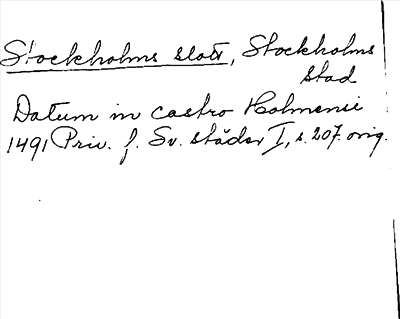 Stockholms slott, Stockholms
stad
Datum in castro Holmenie
1491 Priv. f. Sv. städer I, s. 207. orig.